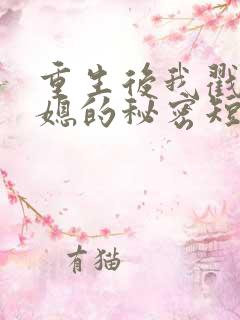 重生後我戳
媳的秘密短
有猫